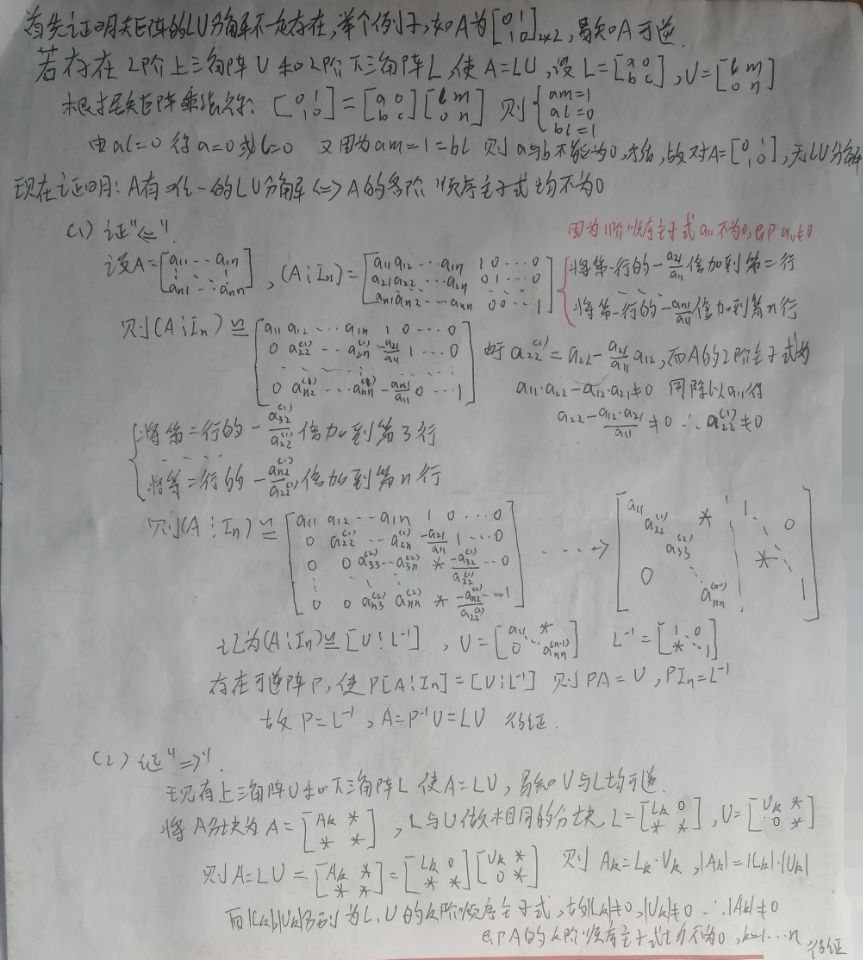 首先证明矩阵的LU分解不一定存在,举个例子,如A为[0 1; 1 0]₂ₓ₂,易知A可逆.
若存在2阶上三角阵U和2阶下三角阵L,使A=LU,设L=[a 0; b c],U=[l m; 0 n]
根据矩阵乘法得:[0 1; 1 0]=[a 0; b c][l m; 0 n] 则{am=1; al=0; bl=1
由al=0得a=0或l=0 又因为am=1=bl 则a与b不能为0,矛盾,故对A=[0 1; 1 0],无LU分解
现在证明:A有唯一的LU分解⇔A的各阶顺序主子式均不为0
(1)证"⇐".
因为1阶顺序主子式a₁₁不为0,即a₁₁≠0
设A=[a₁₁…a₁ₙ; ⋮ ⋱ ⋮; aₙ₁…aₙₙ],(A⋮Iₙ)=[a₁₁ a₁₂…a₁ₙ 1 0…0; a₂₁ a₂₂…a₂ₙ 0 1…0; ……; aₙ₁ aₙ₂…aₙₙ 0 0…1]
{将第一行的-a₂₁/a₁₁倍加到第二行
……
将第一行的-aₙ₁/a₁₁倍加到第n行
则(A⋮Iₙ)≌[a₁₁ a₁₂…a₁ₙ 1 0…0; 0 a₂₂⁽¹⁾…a₂ₙ⁽¹⁾ -a₂₁/a₁₁ 1…0; ……; 0 aₙ₂⁽¹⁾…aₙₙ⁽¹⁾ -aₙ₁/a₁₁ 0…1]
由于a₂₂⁽¹⁾=a₂₂-(a₂₁/a₁₁)a₁₂,而A的2阶主子式为
a₁₁·a₂₂-a₁₂·a₂₁≠0 同除以a₁₁得
a₂₂-(a₁₂·a₂₁)/a₁₁≠0 ∴a₂₂⁽¹⁾≠0
{将第二行的-a₃₂⁽¹⁾/a₂₂⁽¹⁾倍加到第3行
……
将第二行的-aₙ₂⁽¹⁾/a₂₂⁽¹⁾倍加到第n行
则(A⋮Iₙ)≌[a₁₁ a₁₂…a₁ₙ 1 0…0; 0 a₂₂⁽¹⁾…a₂ₙ⁽¹⁾ -a₂₁/a₁₁ 1…0; 0 0 a₃₃⁽²⁾…a₃ₙ⁽²⁾ * -a₃₂⁽¹⁾/a₂₂⁽¹⁾…0; ⋮; 0 0 aₙ₃⁽²⁾ aₙₙ⁽²⁾ * -aₙ₂⁽¹⁾/a₂₂⁽¹⁾…1] ……→[a₁₁ a₂₂⁽¹⁾ a₃₃⁽²⁾ ⋱ aₙₙ⁽ⁿ⁻¹⁾ * 0 ⋮ 1 ⋱ 1 0 *]
记为(A⋮Iₙ)≌[U⋮L⁻¹],U=[a₁₁ *; 0 ⋱ aₙₙ⁽ⁿ⁻¹⁾] L⁻¹=[1 0; * ⋱ 1]
存在可逆阵P,使P[A⋮Iₙ]=[U⋮L⁻¹] 则PA=U,PIₙ=L⁻¹
故P=L⁻¹,A=P⁻¹U=LU 得证.
(2)证"⇒".
现有上三角阵U和下三角阵L使A=LU,易知U与L均可逆.
将A分块为A=[Aₖ *; * *],L与U做相同的分块,L=[Lₖ 0; * *],U=[Uₖ *; 0 *]
则A=LU=[Aₖ *; * *]=[Lₖ 0; * *][Uₖ *; 0 *] 则Aₖ=Lₖ·Uₖ,|Aₖ|=|Lₖ|·|Uₖ|
而|Lₖ|,|Uₖ|分别为L,U的k阶顺序主子式,故|Lₖ|≠0,|Uₖ|≠0 ∴|Aₖ|≠0
即A的k阶顺序主子式均不为0,k=1…n 得证